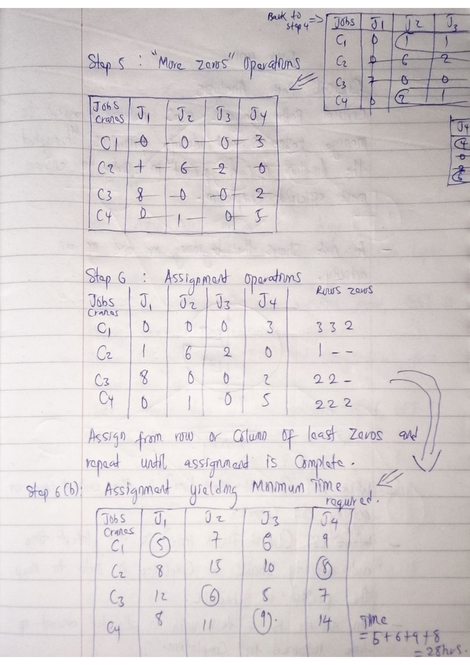 Back to
Step 4 =>
Jobs J1 J2 J3
C1 0 1 1
C2 0 6 2
C3 7 0 0
C4 0 2 1
J4
Step 5 : "More zeros" Operations
Jobs
Cranes J1 J2 J3 J4
C1 0 0 0 3
C2 1 6 2 0
C3 8 0 0 2
C4 0 1 0 5
Step 6 : Assignment Operations
Jobs
Cranes J1 J2 J3 J4 Rows zeros
C1 0 0 0 3 3 3 2
C2 1 6 2 0 1 - -
C3 8 0 0 2 2 2 -
C4 0 1 0 5 2 2 2
Assign from row or Column of least Zeros and
repeat until assignment is Complete.
Step 6(b): Assignment yielding Minimum Time
required.
Jobs
Cranes J1 J2 J3 J4
C1 5 7 6 9
C2 8 15 10 8
C3 12 6 5 7
C4 8 11 9. 14
Time
= 5+6+9+8
= 28hrs.